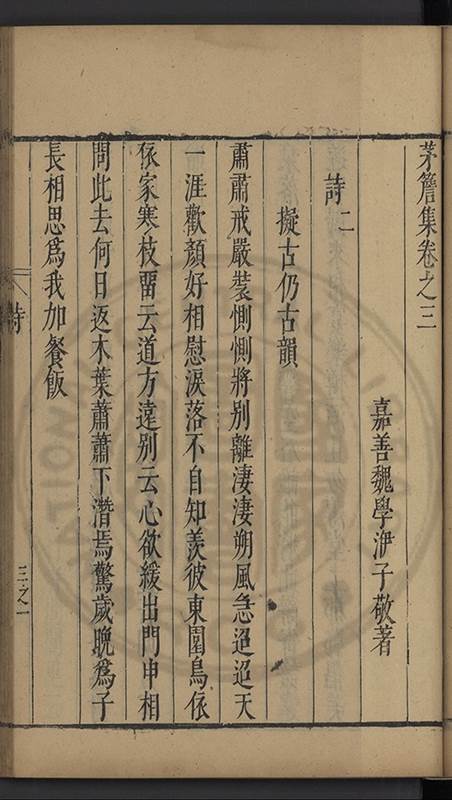 茅簷集卷之三
嘉善魏學洢子敬著
詩二
擬古仍古韻
肅肅戒嚴裝惻惻將别離淒淒朔風急迢迢天
一涯歡顏好相慰淚落不自知羨彼東園鳥依
依家寒枝畱云道方遠别云心欲緩出門申相
問此去何日返木葉蕭蕭下潸焉驚歲晚爲子
長相思爲我加餐飯
詩
三之一